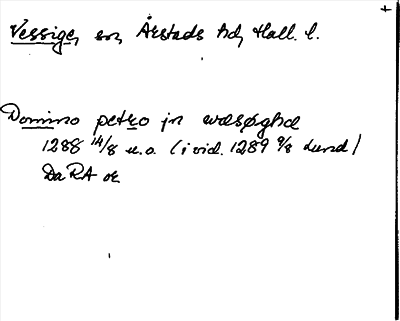 +
Vessige, sn, Årstads hd, Hall. l.
Domino petro jn wæsøghæ
1288 14/8 u.o. (i vid. 1289 9/8 Lund)
DaRA or